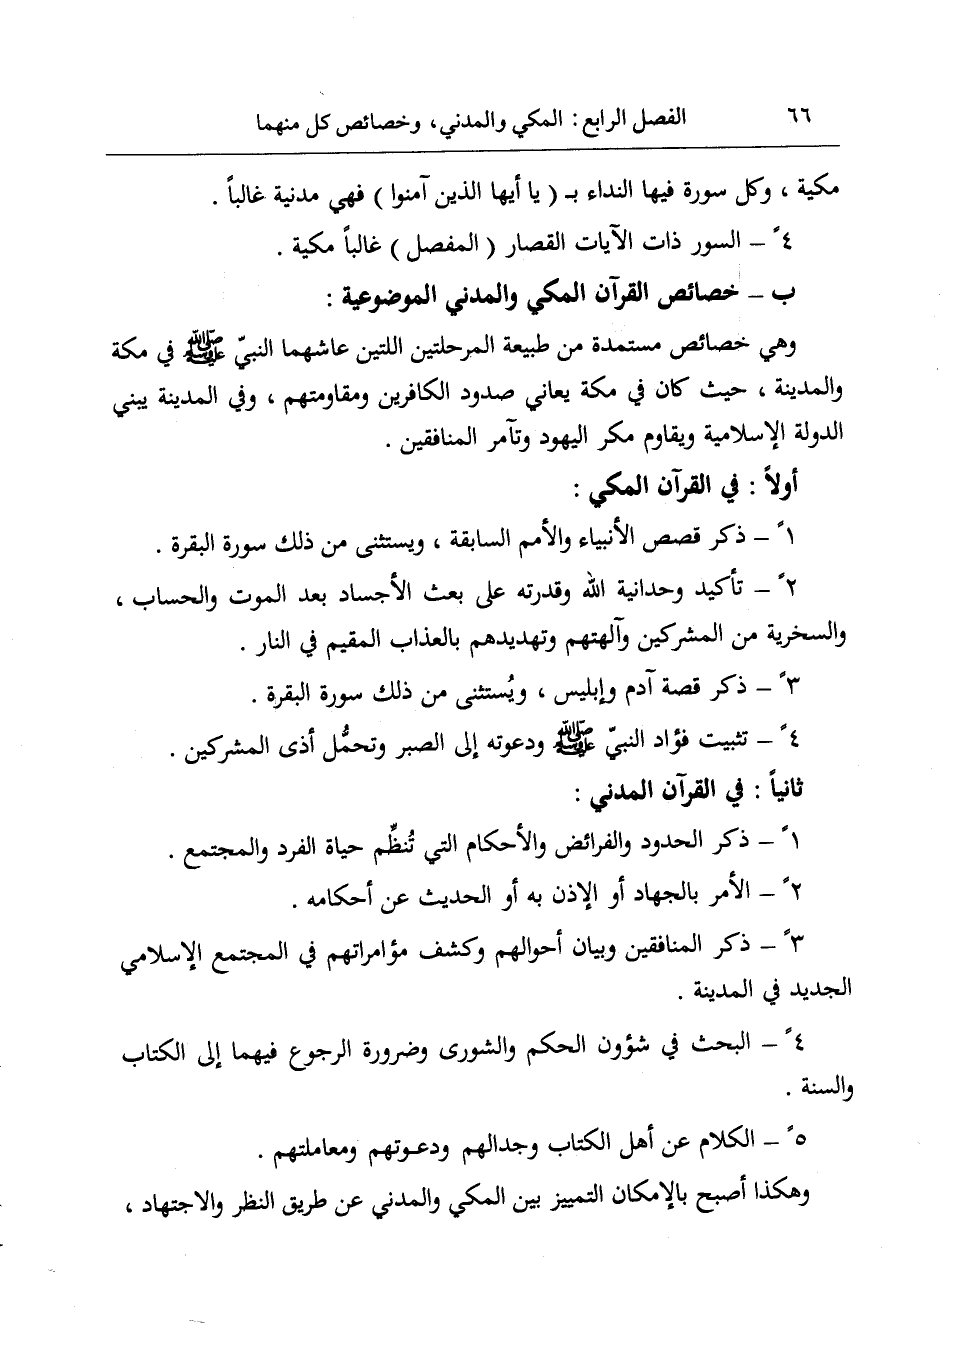 ٦٦ الفصل الرابع : المكي والمدني ، وخصائص كل منهما
مكية ، وكل سورة فيها النداء بـ ( يا أيها الذين آمنوا ) فهي مدنية غالباً .
٤ً – السور ذات الآيات القصار ( المفصل ) غالباً مكية .
ب – خصائص القرآن المكي والمدني الموضوعية :
وهي خصائص مستمدة من طبيعة المرحلتين اللتين عاشهما النبيّ ﷺ في مكة
والمدينة ، حيث كان في مكة يعاني صدود الكافرين ومقاومتهم ، وفي المدينة يبني
الدولة الإسلامية ويقاوم مكر اليهود وتآمر المنافقين .
أولاً : في القرآن المكي :
١ً – ذكر قصص الأنبياء والأمم السابقة ، ويستثنى من ذلك سورة البقرة .
٢ً – تأكيد وحدانية الله وقدرته على بعث الأجساد بعد الموت والحساب ،
والسخرية من المشركين وآلهتهم وتهديدهم بالعذاب المقيم في النار .
٣ً – ذكر قصة آدم وإبليس ، ويُستثنى من ذلك سورة البقرة .
٤ً – تثبيت فؤاد النبيّ ﷺ ودعوته إلى الصبر وتحمُّل أذى المشركين .
ثانياً : في القرآن المدني :
١ً – ذكر الحدود والفرائض والأحكام التي تُنظِّم حياة الفرد والمجتمع .
٢ً – الأمر بالجهاد أو الإذن به أو الحديث عن أحكامه .
٣ً – ذكر المنافقين وبيان أحوالهم وكشف مؤامراتهم في المجتمع الإسلامي
الجديد في المدينة .
٤ً – البحث في شؤون الحكم والشورى وضرورة الرجوع فيهما إلى الكتاب
والسنة .
٥ً – الكلام عن أهل الكتاب وجدالهم ودعوتهم ومعاملتهم .
وهكذا أصبح بالإمكان التمييز بين المكي والمدني عن طريق النظر والاجتهاد ،